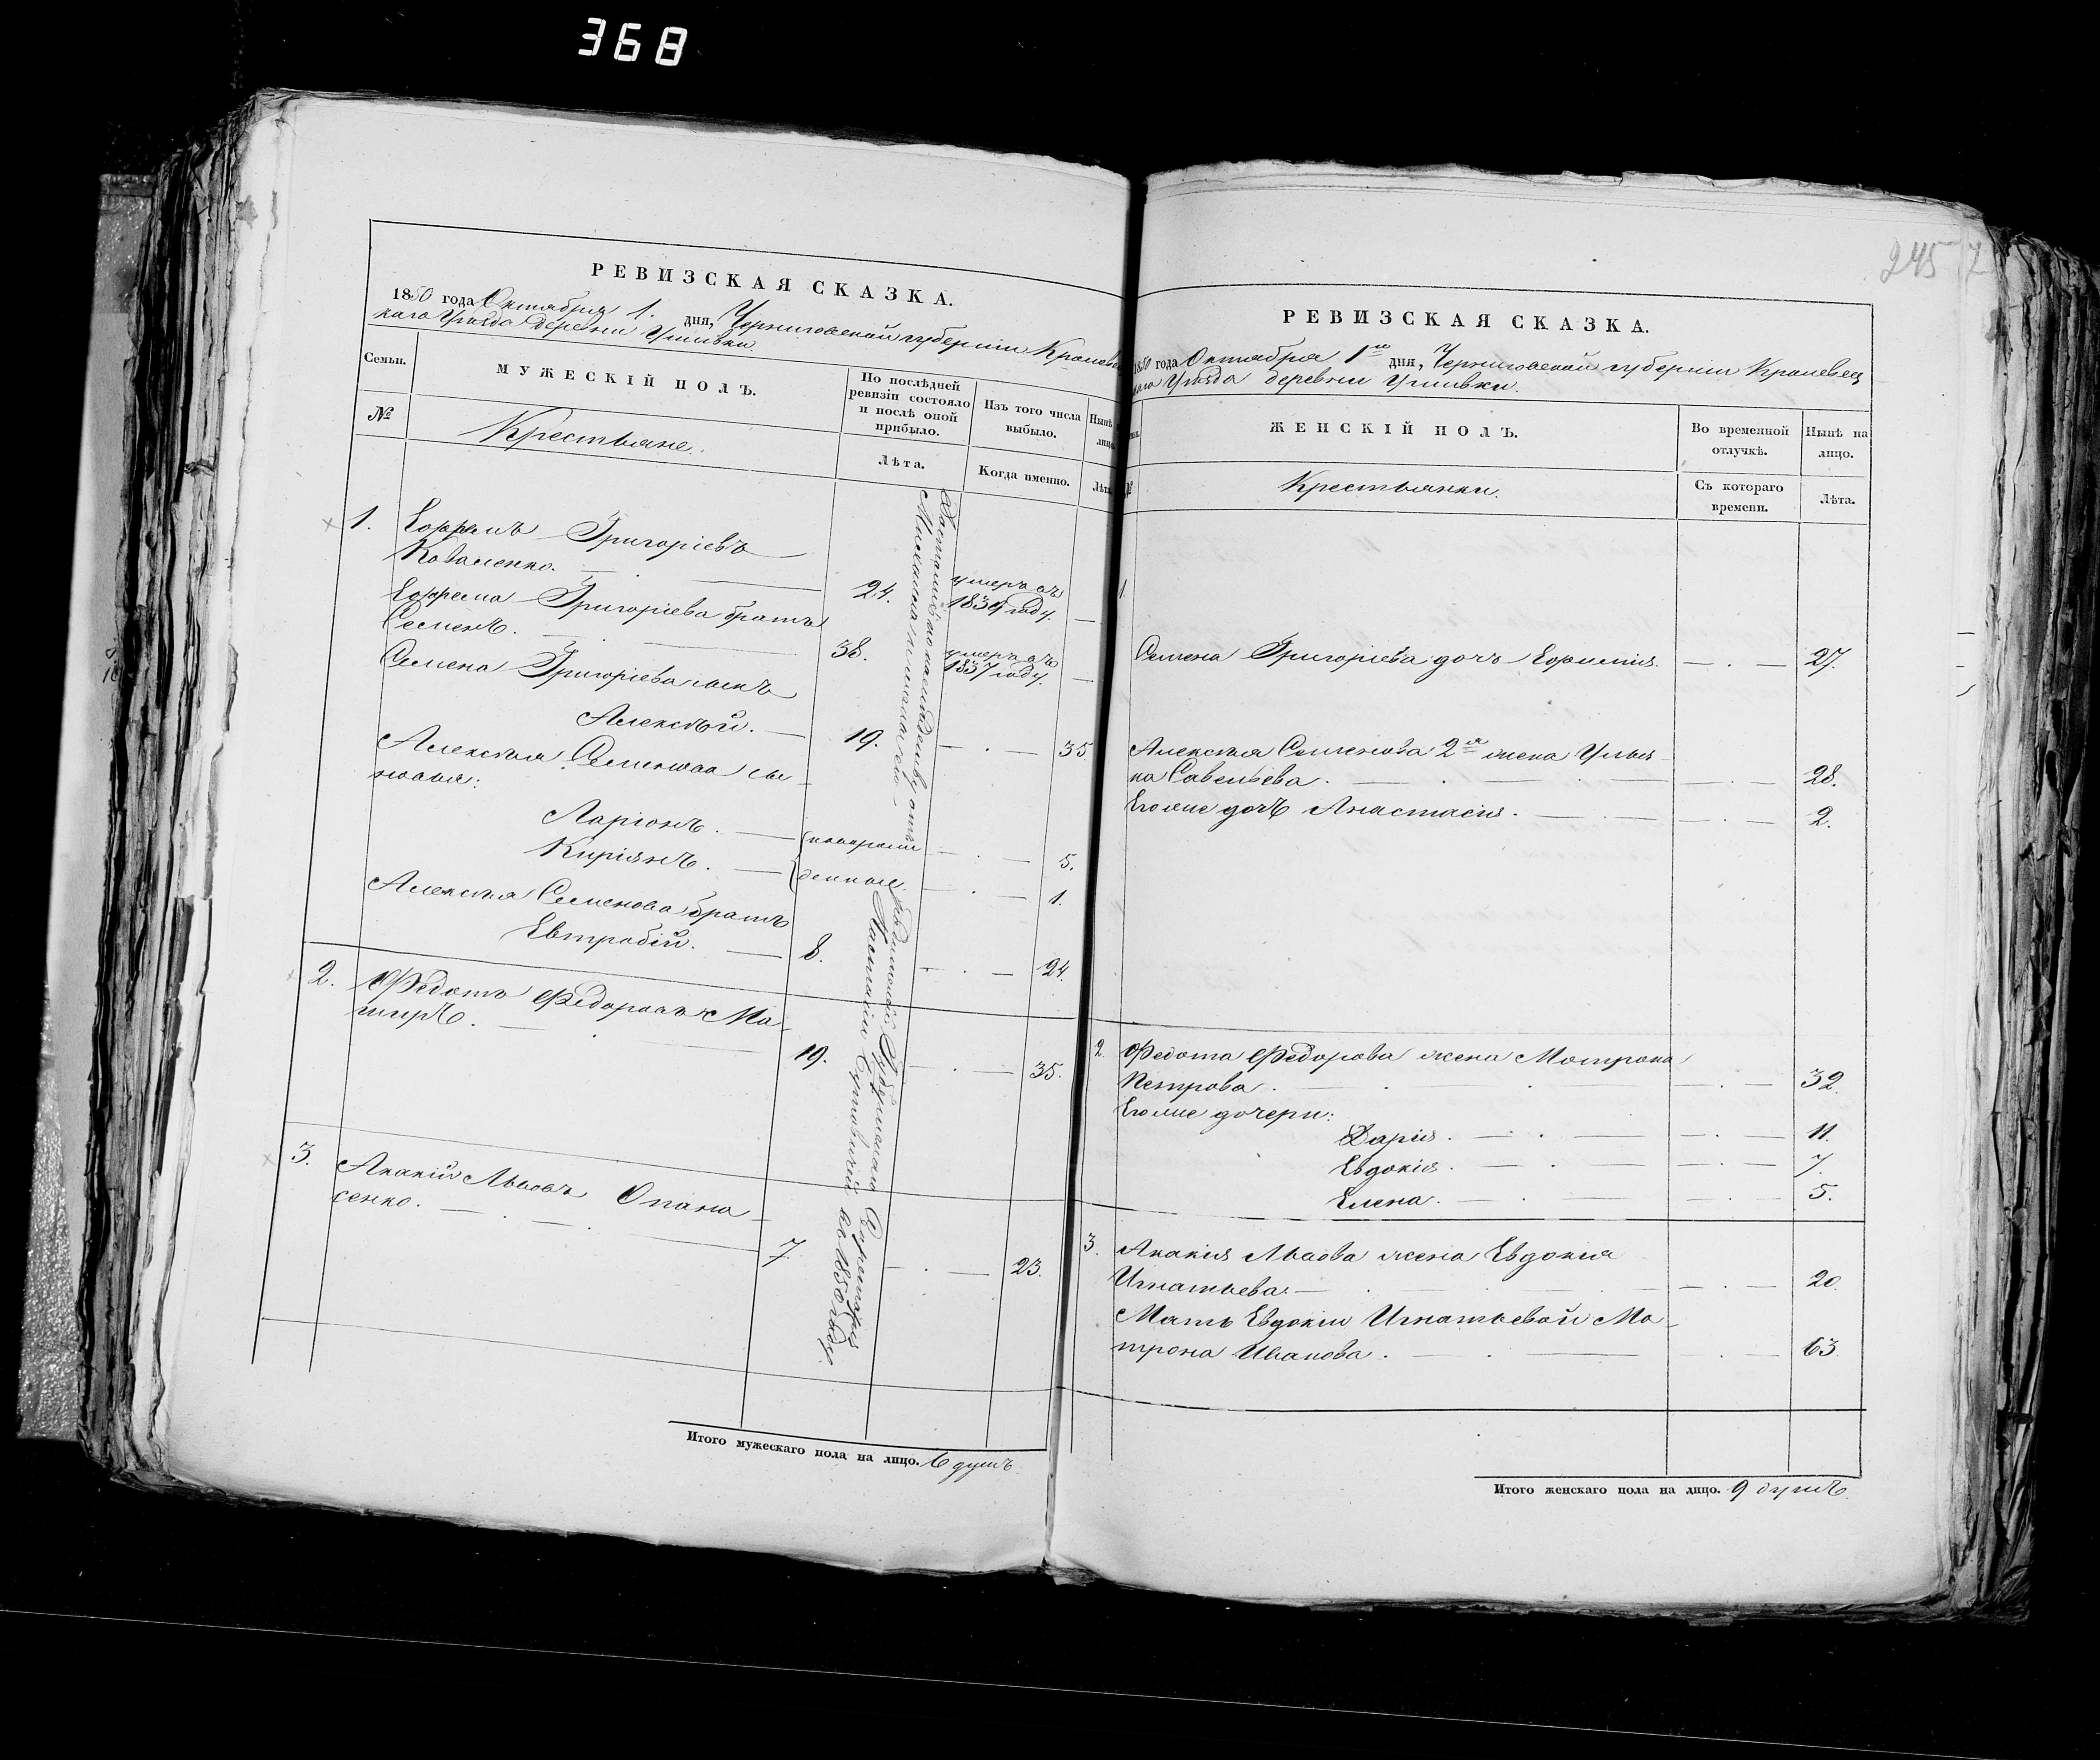 368
245
РЕВИЗСКАЯ СКАЗКА.
1850 года Октября 1. дня, Черниговской губерніи Кролевец
каго Уѣзда деревни
Семьи.
МУЖЕСКІЙ ПОЛЪ.
По послѣдней ревизіи состояло и послѣ оной прибыло.
Изъ того числа выбыло.
Нынѣ
лицо
№
Крестьяне.
Лѣта.
Когда именно.
Лѣта
1. Ефремъ Григоріевъ
Коваленко. 24. умеръ въ 1839 году.
Ефрема Григоріева братъ
Семенъ. 38. умеръ въ 1837 году.
Семена Григоріева сынъ
Алексѣй. 19. 35
Алексѣя Семенова сы-
новья:
Ларіонъ. новорож 5.
Киріянъ. денные 1.
Алексѣя Семенова братъ
Евтробій. 8. 24.
2. Федотъ Федоровъ Ма-
ширъ. 19. 35.
3. Акакій Львовъ Опана-
сенко. 7. 23.
Достались по наслѣдству отъ
въ 1850 году.
Итого мужескаго пола на лицо. 6 душъ.
РЕВИЗСКАЯ СКАЗКА.
1850 года Октября 1го дня, Черниговской губерніи Кролевец
каго Уѣзда деревни
ЖЕНСКІЙ ПОЛЪ.
Во временной отлучкѣ.
Нынѣ на лицо.
№
Крестьянки.
Съ котораго времени.
Лѣта.
1.
Семена Григоріева дочь Ефимія. 27.
Алексѣя Семенова 2я жена Улья-
на Савельева. 28.
Его же дочь Анастасія. 2.
2. Федота Федорова жена Мотрона
Петрова. 32.
Его же дочери:
Дарія. 11.
Евдокія. 7.
Елена. 5.
3. Акакія Львова жена Евдокія
Игнатьева. 20.
Мать Евдокіи Игнатьевой Ма-
трона Иванова. 63.
Итого женскаго пола на лицо. 9 душъ.